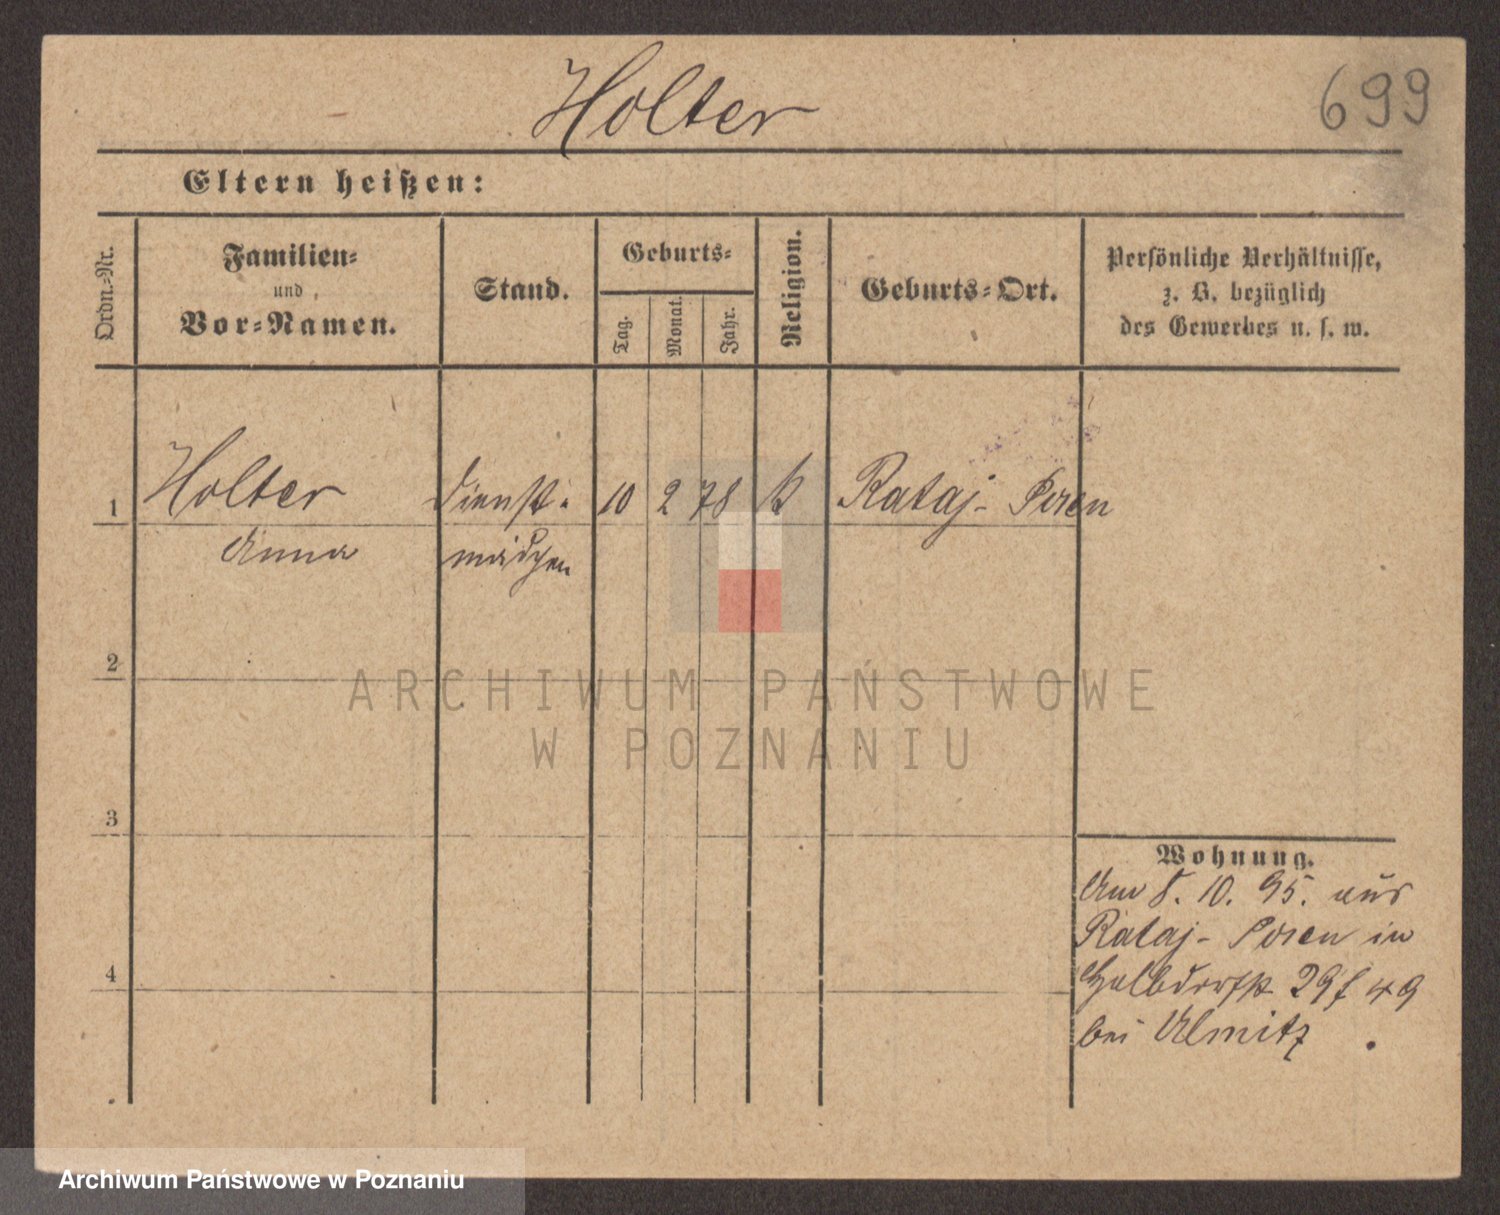 Holter
699
Eltern heißen:
Ordn.-Nr.
Familien-
und
Vor-Namen.
Stand.
Geburts-
Tag.
Monat.
Jahr.
Religion.
Geburts-Ort.
Persönliche Verhältnisse,
z. B. bezüglich
des Gewerbes u. s. w.
1 Holter Dienst- 10 2 78 k Rataj- Posen
Anna mädchen
2
3
4
Wohnung.
Am 8. 10. 95. aus
Rataj- Posen in
Halbdorfst 29
bei Ulmitz
ARCHIWUM PAŃSTWOWE
W POZNANIU
Archiwum Państwowe w Poznaniu